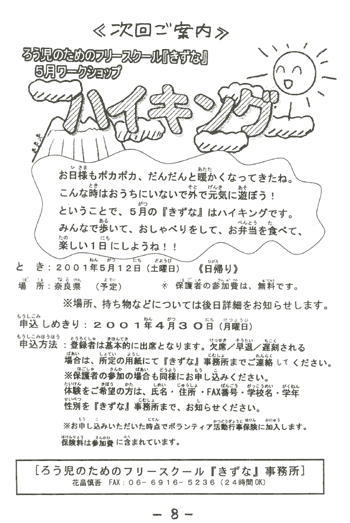 ≪次回ご案内≫
ろう児のためのフリースクール『きずな』
5月ワークショップ
ハイキング
お日様もポカポカ、だんだんと暖かくなってきたね。
こんな時はおうちにいないで外で元気に遊ぼう！
ということで、5月の『きずな』はハイキングです。
みんなで歩いて、おしゃべりをして、お弁当を食べて、
楽しい1日にしようね！！
とき：2001年5月12日（土曜日）《日帰り》
場所：奈良県（予定）※保護者の参加費は、無料です。
※場所、持ち物などについては後日詳細をお知らせします。
申込しめきり：2001年4月30日（月曜日）
申込方法：登録者は基本的に出席となります。欠席／早退／遅刻される
場合は、所定の用紙にて『きずな』事務所までご連絡してください。
※保護者の参加の場合も同様にお申し込みください。
体験をご希望の方は、氏名・住所・FAX番号・学校名・学年
性別を『きずな』事務所まで、お知らせください。
※お申し込みいただいた時点でボランティア活動行事保険に加入します。
保険料は参加費に含まれています。
［ろう児のためのフリースクール『きずな』事務所］
花晶慎吾 FAX：06-6916-5236（24時間OK）
－8－